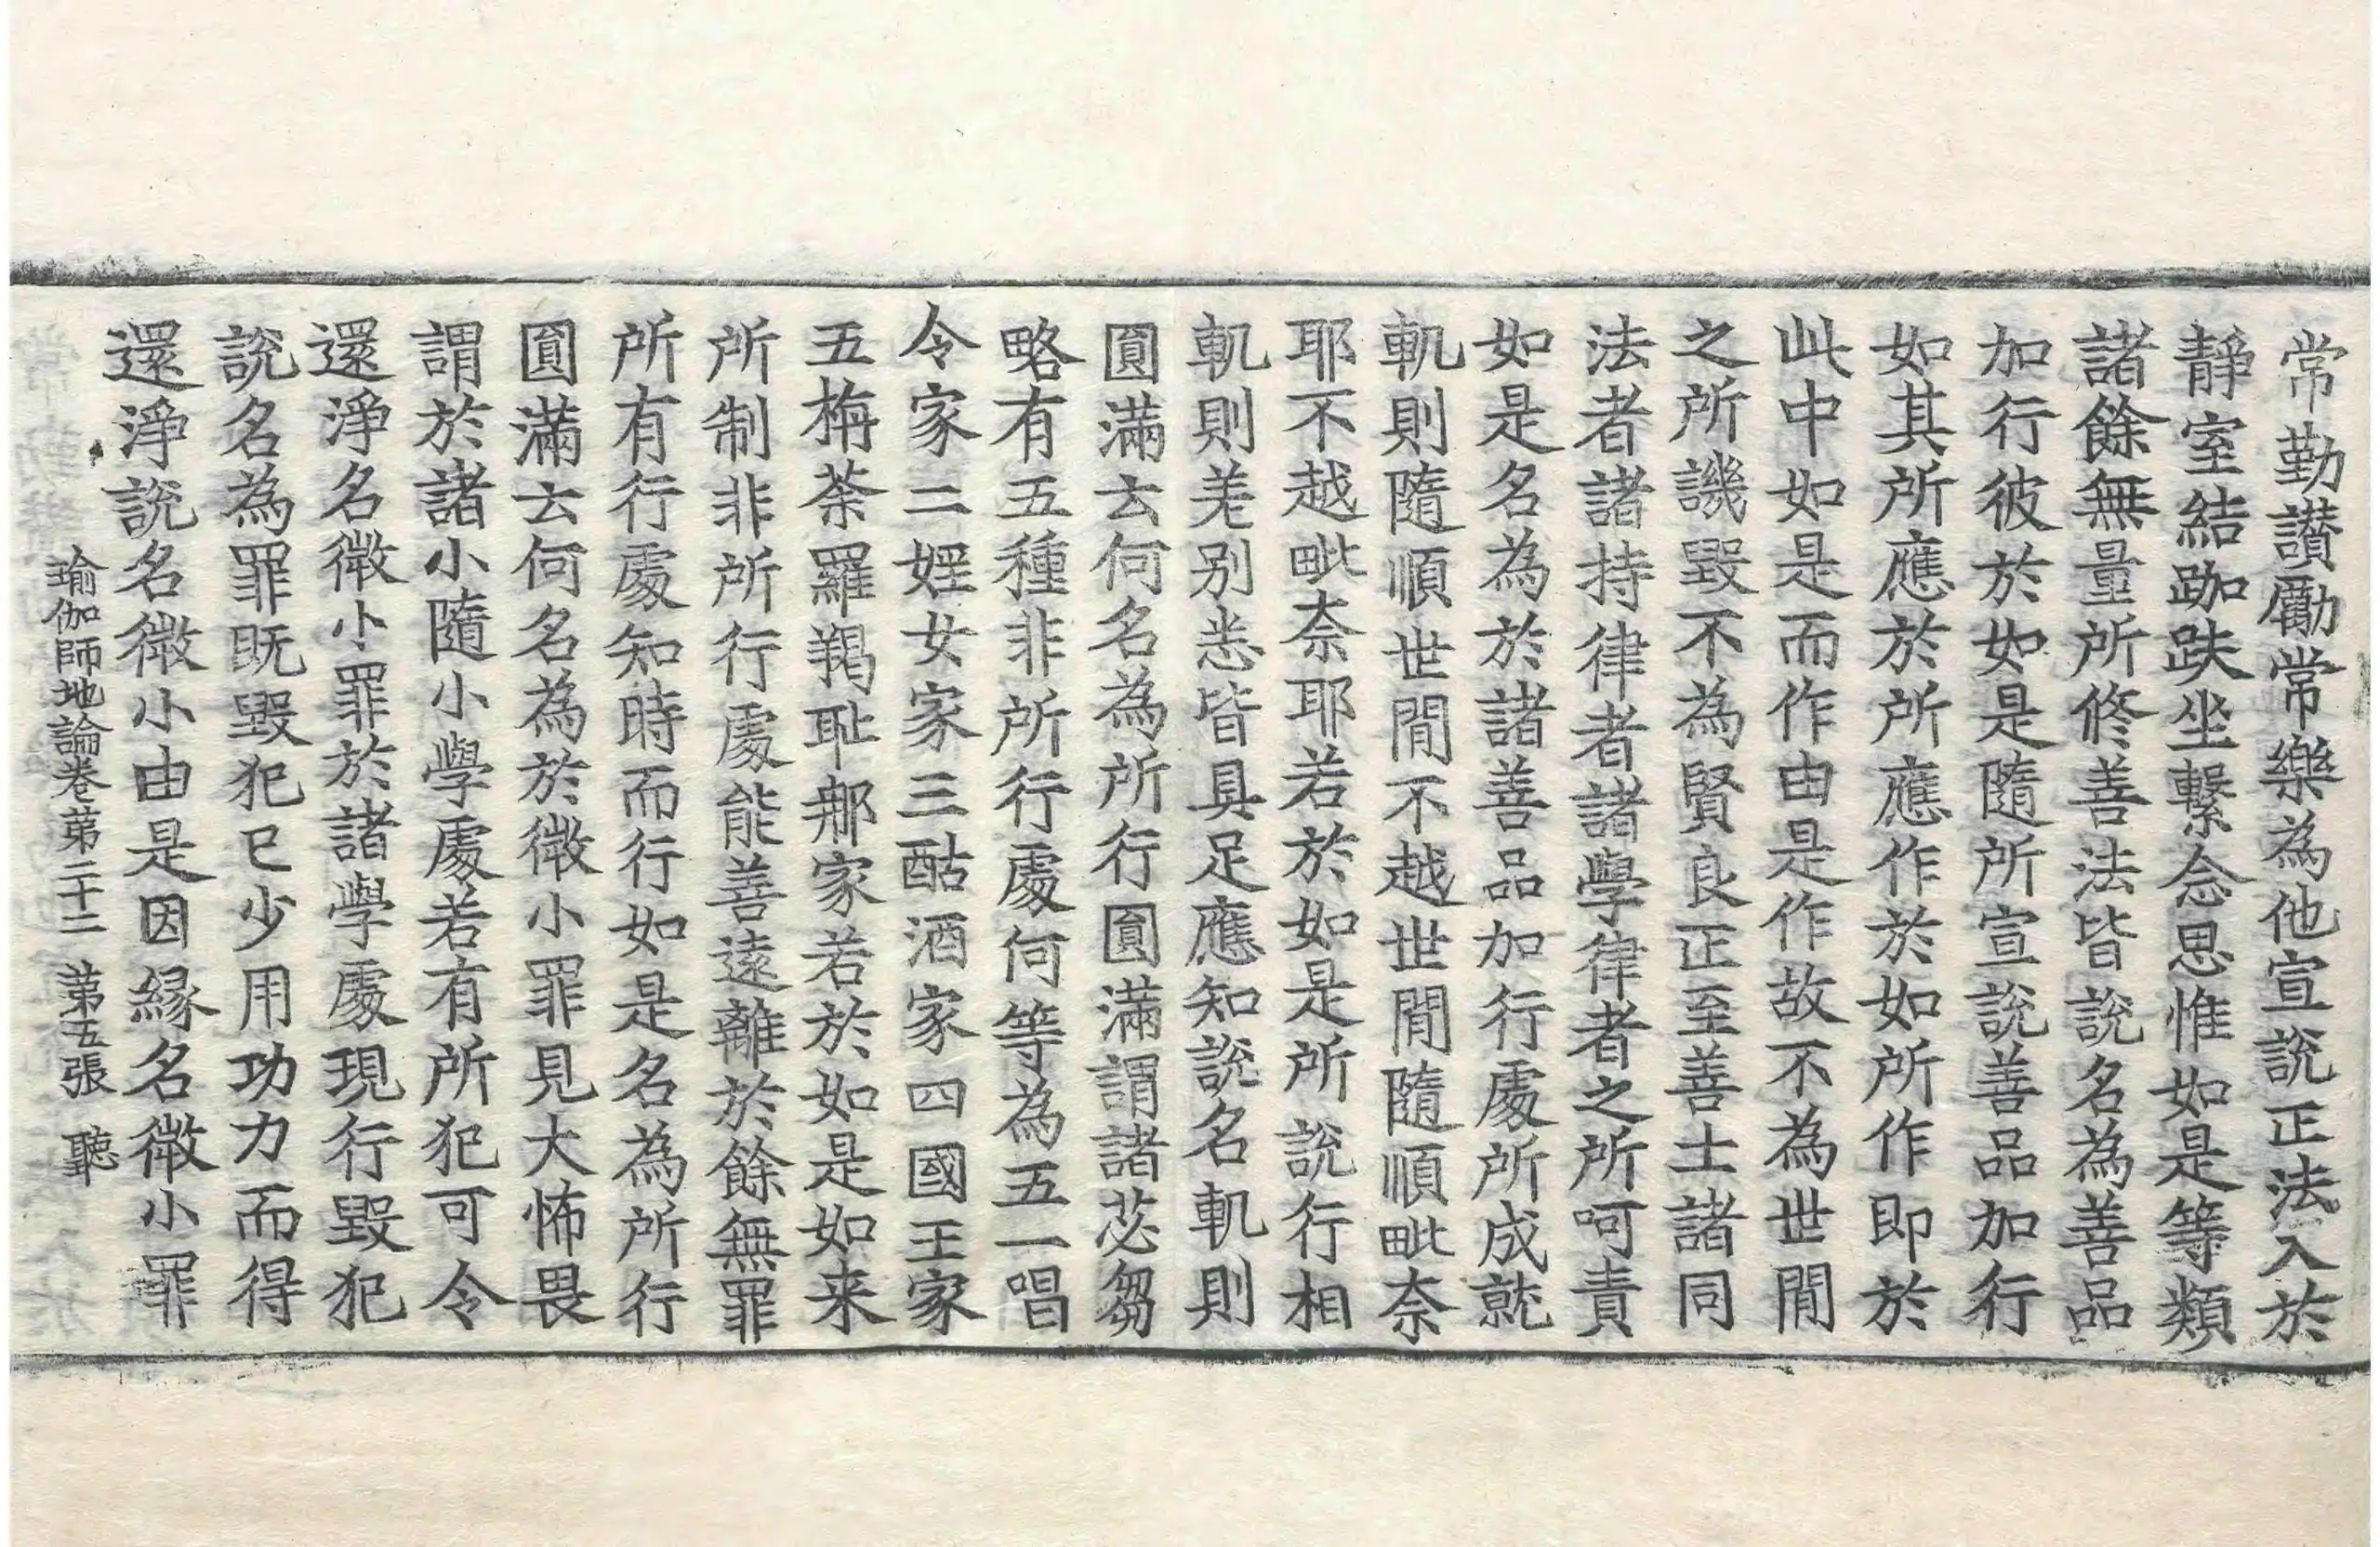 常勤讃勵常樂為他宣說正法入於
靜室結跏趺坐繫念思惟如是等類
諸餘無量所修善法皆說名為善品
加行彼於如是隨所宣說善品加行
如其所應於所應作於如所作即於
此中如是而作由是作故不為世間
之所譏毀不為賢良正至善士諸同
法者諸持律者諸學律者之所呵責
如是名為於諸善品加行處所成就
軌則隨順世間不越世間隨順毗奈
耶不越毗奈耶若於如是所說行相
軌則差別悉皆具足應知說名軌則
圓滿云何名為所行圓滿謂諸苾芻
略有五種非所行處何等為五一唱
令家二婬女家三酤酒家四國王家
五旃荼羅羯耻那家若於如是如来
所制非所行處能善遠離於餘無罪
所有行處知時而行如是名為所行
圓滿云何名為於微小罪見大怖畏
謂於諸小隨小學處若有所犯可令
還淨名微小罪於諸學處現行毀犯
說名為罪既毀犯已少用功力而得
還淨說名微小由是因緣名微小罪
瑜伽師地論卷苐二十二 苐五張 聽